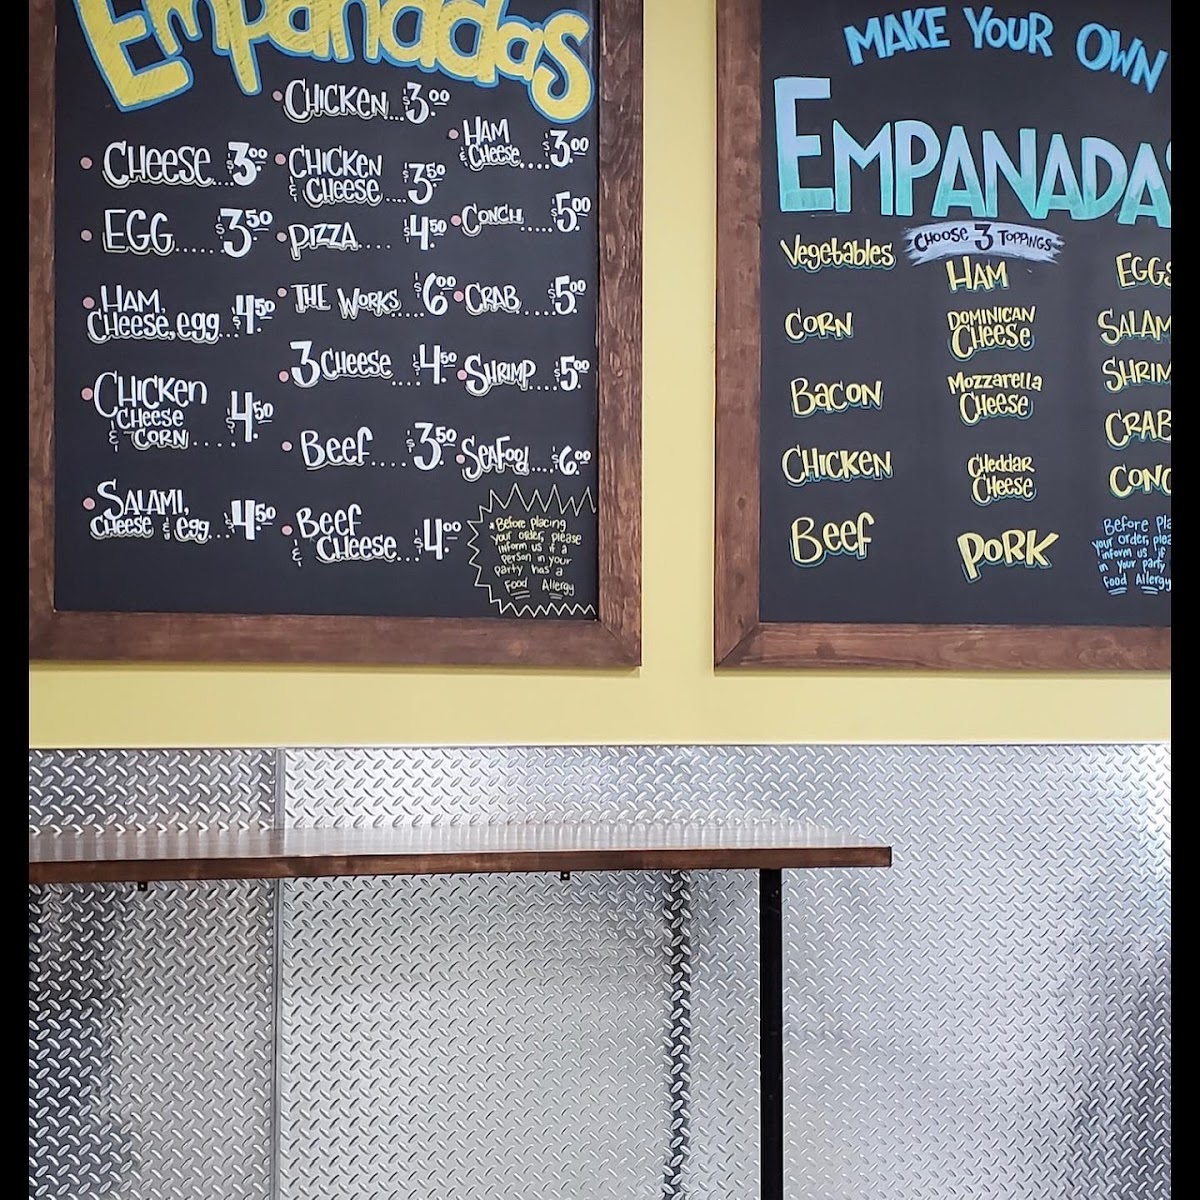 Empanadas
• CHEESE....$3.00
• EGG.....$3.50
• HAM,
CHEESE, egg...$4.50
• CHICKEN
CHEESE
& CORN.....$4.50
• SALAMI,
CHEESE & egg...$4.50
• CHICKEN...$3.00
• CHICKEN
& CHEESE....$3.50
• PIZZA....$4.50
• THE WORKS....$6.00
• 3 CHEESE....$4.50
• Beef....$3.50
• Beef
& CHEESE...$4.00
• HAM
& CHEESE....$3.00
• CONCH.....$5.00
• CRAB...$5.00
• SHRIMP...$5.00
• SEAFOOD....$6.00
* Before placing
your order, please
inform us if a
person in your
party has a
Food Allergy
MAKE YOUR OWN
EMPANADAS
CHOOSE 3 TOPPINGS
Vegetables
CORN
BACON
CHICKEN
Beef
HAM
DOMINICAN
CHEESE
MOZZARELLA
CHEESE
CHEDDAR
CHEESE
PORK
EGGS
SALAM
SHRIM
CRAB
CONC
Before Pla
your order, plea
inform us if
in your party
Food Allergy